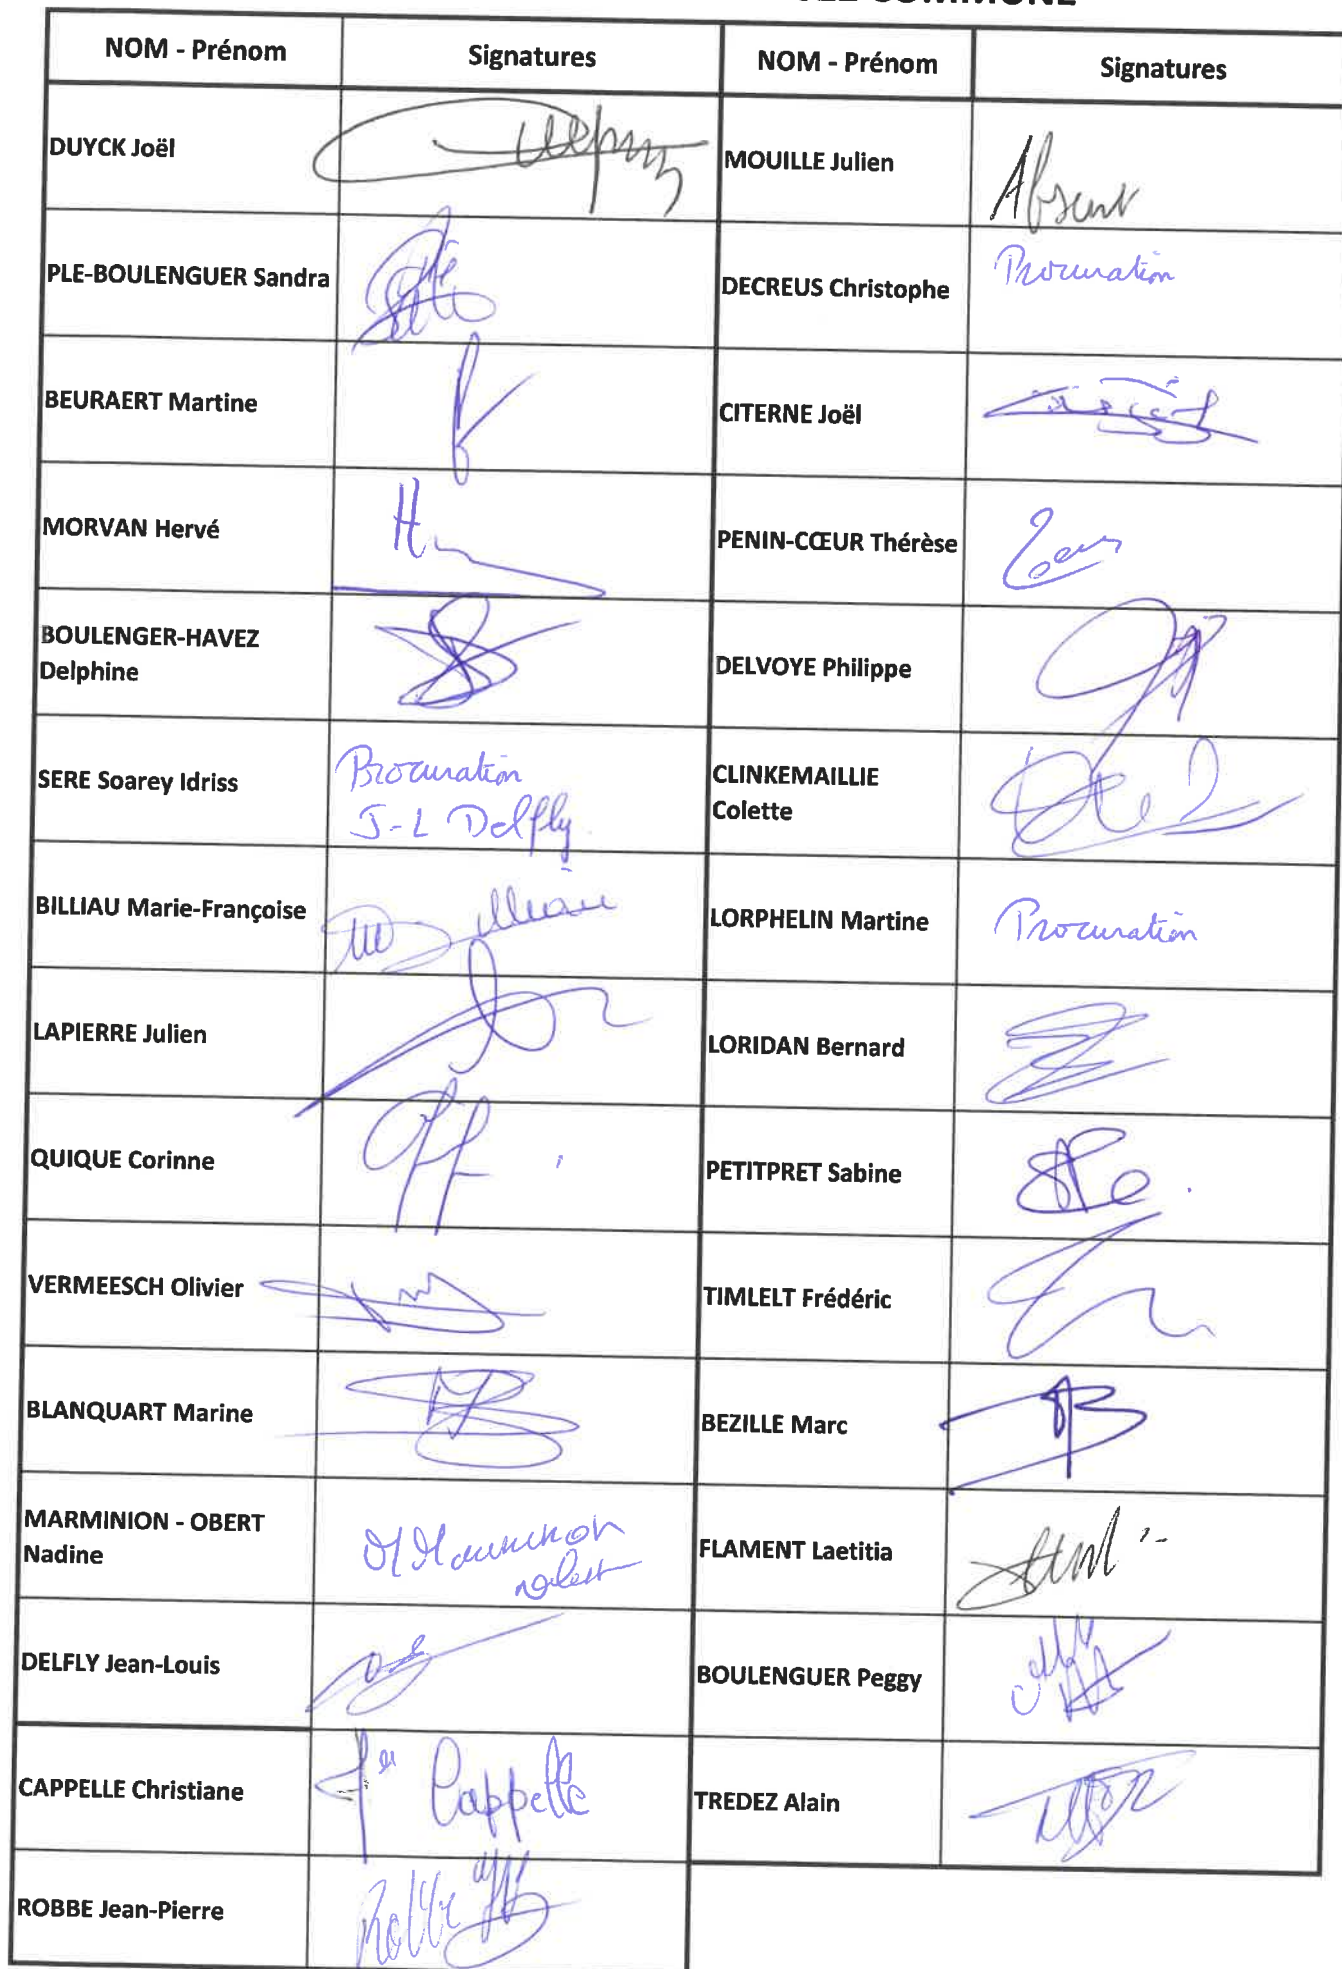 COMMUNE
NOM - Prénom Signatures NOM - Prénom Signatures
DUYCK Joël MOUILLE Julien Absent
PLE-BOULENGUER Sandra DECREUS Christophe Procuration
BEURAERT Martine CITERNE Joël
MORVAN Hervé PENIN-CŒUR Thérèse
BOULENGER-HAVEZ
Delphine DELVOYE Philippe
SERE Soarey Idriss Procuration
J-L Delfly CLINKEMAILLIE
Colette
BILLIAU Marie-Françoise LORPHELIN Martine Procuration
LAPIERRE Julien LORIDAN Bernard
QUIQUE Corinne PETITPRET Sabine
VERMEESCH Olivier TIMLELT Frédéric
BLANQUART Marine BEZILLE Marc
MARMINION - OBERT
Nadine FLAMENT Laetitia
DELFLY Jean-Louis BOULENGUER Peggy
CAPPELLE Christiane Cappelle TREDEZ Alain
ROBBE Jean-Pierre Robbe